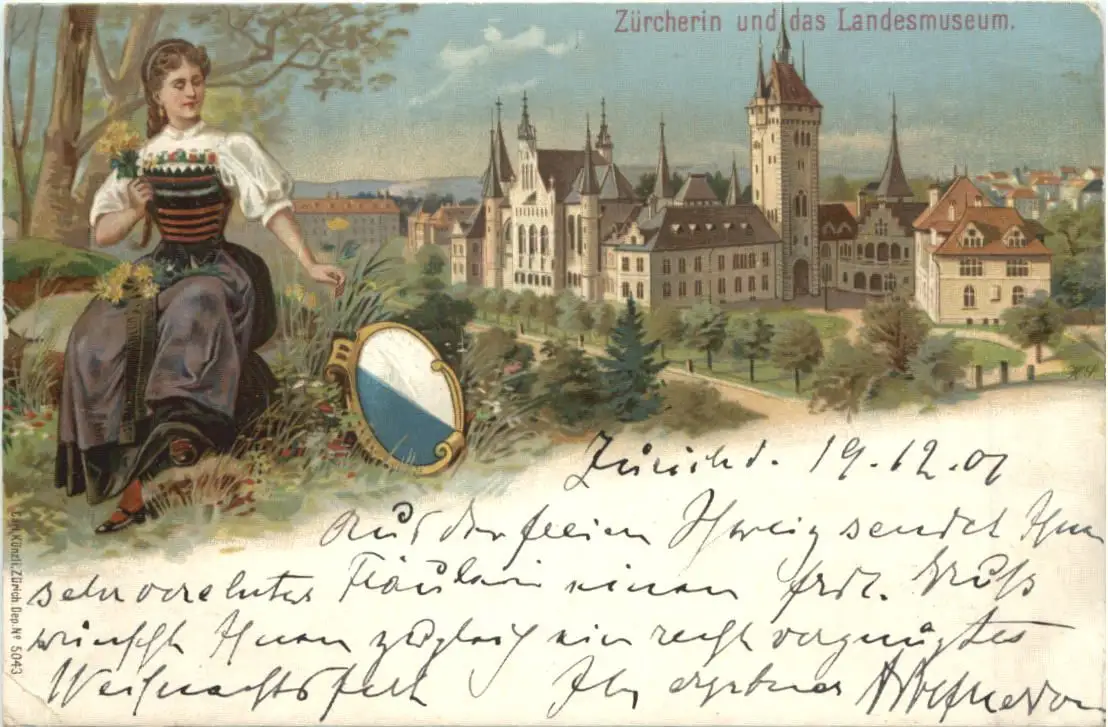 Zürcherin und das Landesmuseum.
Zürich d. 19.12.01
Aus der freien Schweiz sendet Ihnen
sehr verehrtes Fräulein einen frdl. Gruß
wünscht Ihnen zugleich ein recht vergnügtes
Weihnachtsfest Ihr ergebener
Carl Künzli, Zürich Dep. Nº 5043